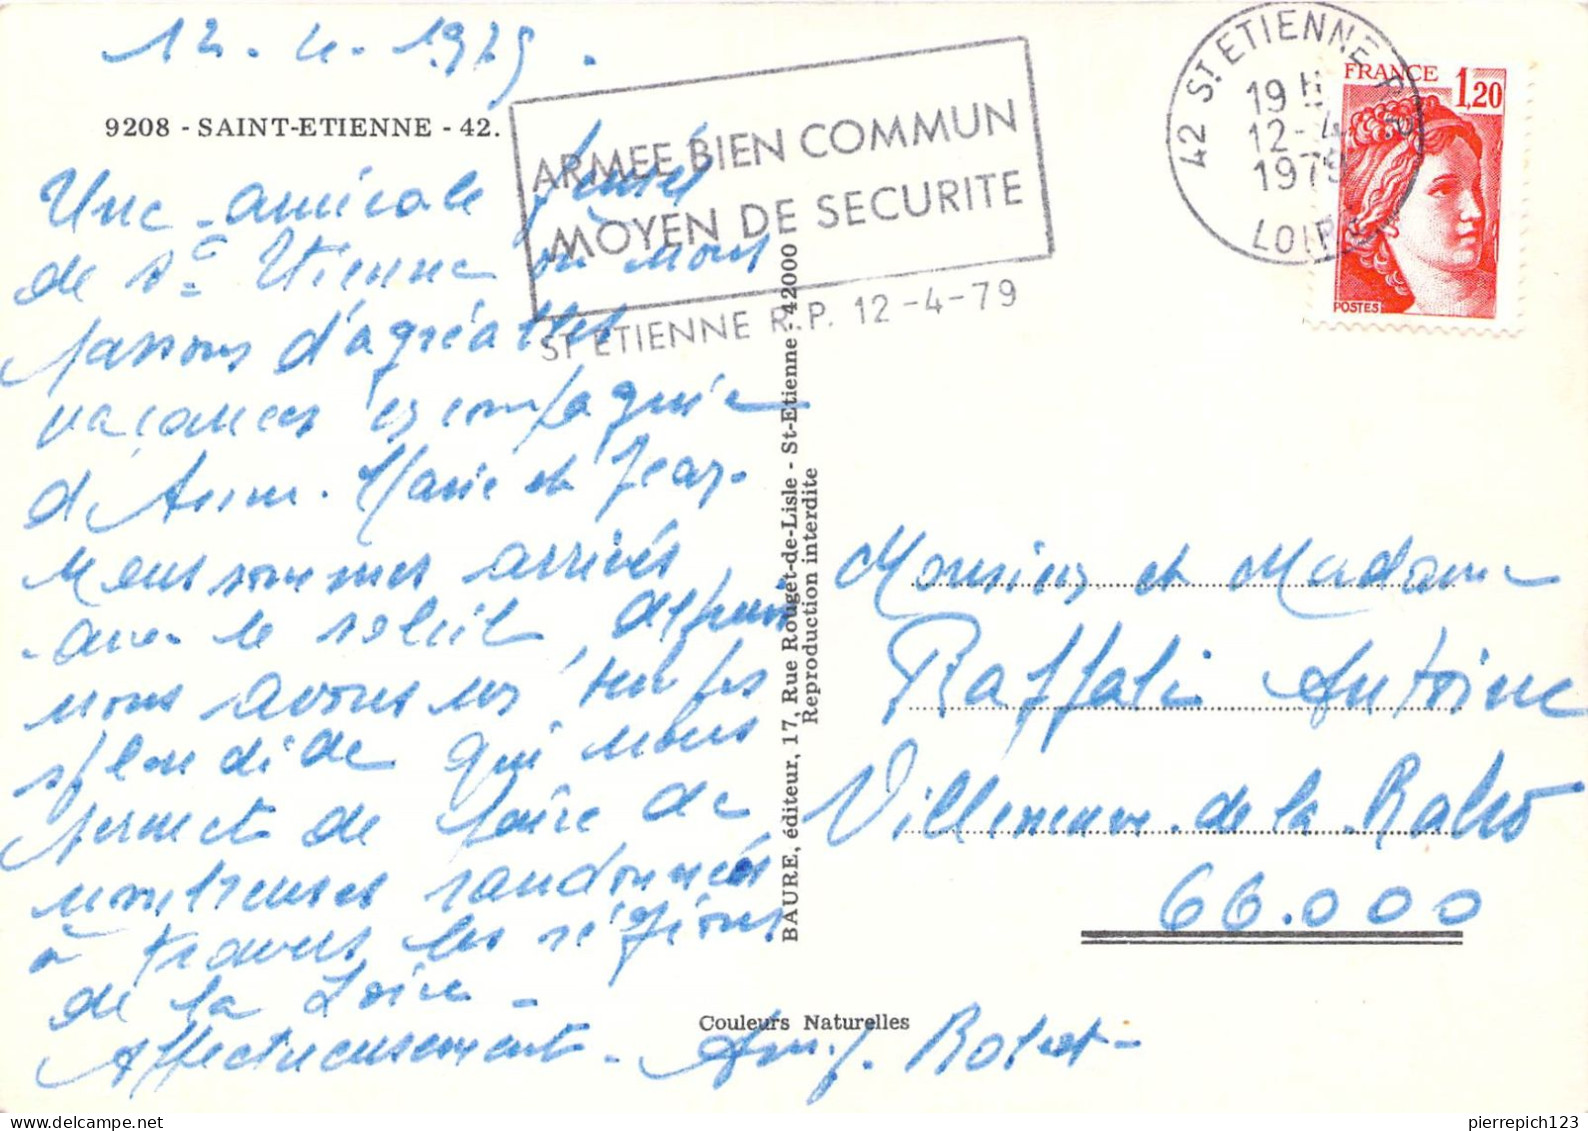 12-4-1979.
9208 - SAINT-ETIENNE - 42.
ARMEE BIEN COMMUN
MOYEN DE SECURITE
ST ETIENNE R.P. 12-4-79
42 ST ETIENNE R.P.
19 H
12-4
1979
LOIRE
FRANCE 1,20
POSTES
Une amicale pensée
de St Etienne où nous
passons d'agréables
vacances en compagnie
d'Anne-Marie et Jean.
Nous sommes arrivés
avec le soleil, depuis
nous avons un temps
splendide qui nous
permet de faire de
nombreuses randonnées
à travers les régions
de la Loire -
Affectueusement -
BAURE, éditeur, 17, Rue Rouget-de-Lisle - St-Etienne - 42000
Reproduction interdite
Couleurs Naturelles
Monsieur et Madame
Raffali Antoine
Villeneuve-de-la-Raho
66.000
pierrepich123